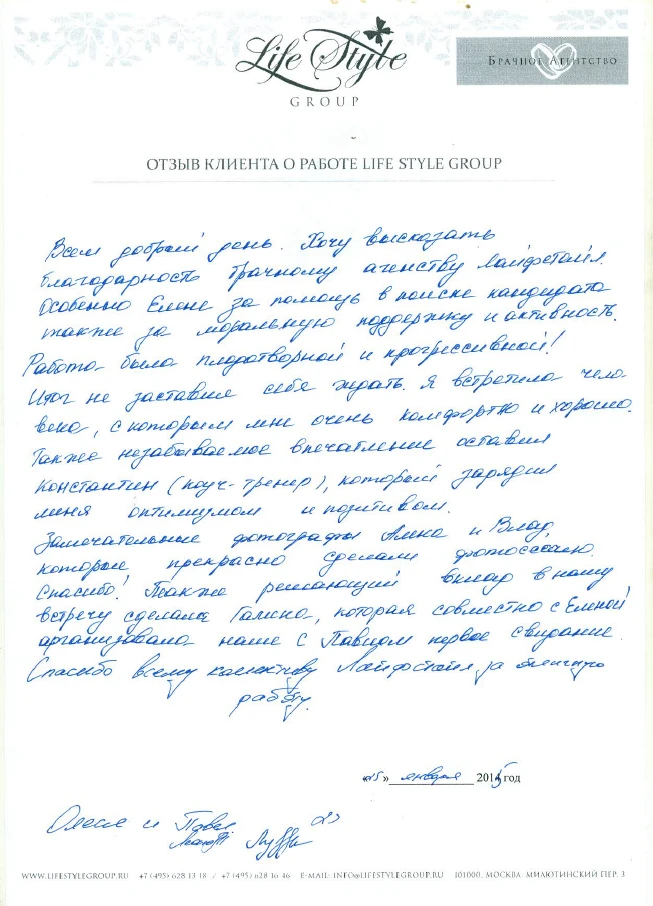 Life Style
GROUP
БРАЧНОЕ АГЕНТСТВО
ОТЗЫВ КЛИЕНТА О РАБОТЕ LIFE STYLE GROUP
Всем добрый день. Хочу высказать
благодарность брачному агенству Лайфстайл.
Особенно Елене за помощь в поиске кандидата
также за моральную поддержку и активность.
Работа была плодотворной и прогрессивной!
Итог не заставил себя ждать. Я встретила чело-
века, с которым мне очень комфортно и хорошо.
Также незабываемое впечатление оставил
Константин (коуч-тренер), который зарядил
меня оптимизмом и позитивом.
Замечательные фотографы Алена и Влад,
которые прекрасно сделали фотосессию.
Спасибо! Также решающий вклад в нашу
встречу сделала Галина, которая совместно с Еленой
организовала наше с Павлом первое свидание.
Спасибо всему коллективу Лайфстайл за отличную
работу.
«25» января 2015 год
Олеся и Павел
WWW.LIFESTYLEGROUP.RU +7 (495) 628 13 18 / +7 (495) 628 16 46 E-MAIL: INFO@LIFESTYLEGROUP.RU 101000, МОСКВА, МИЛЮТИНСКИЙ ПЕР. 3